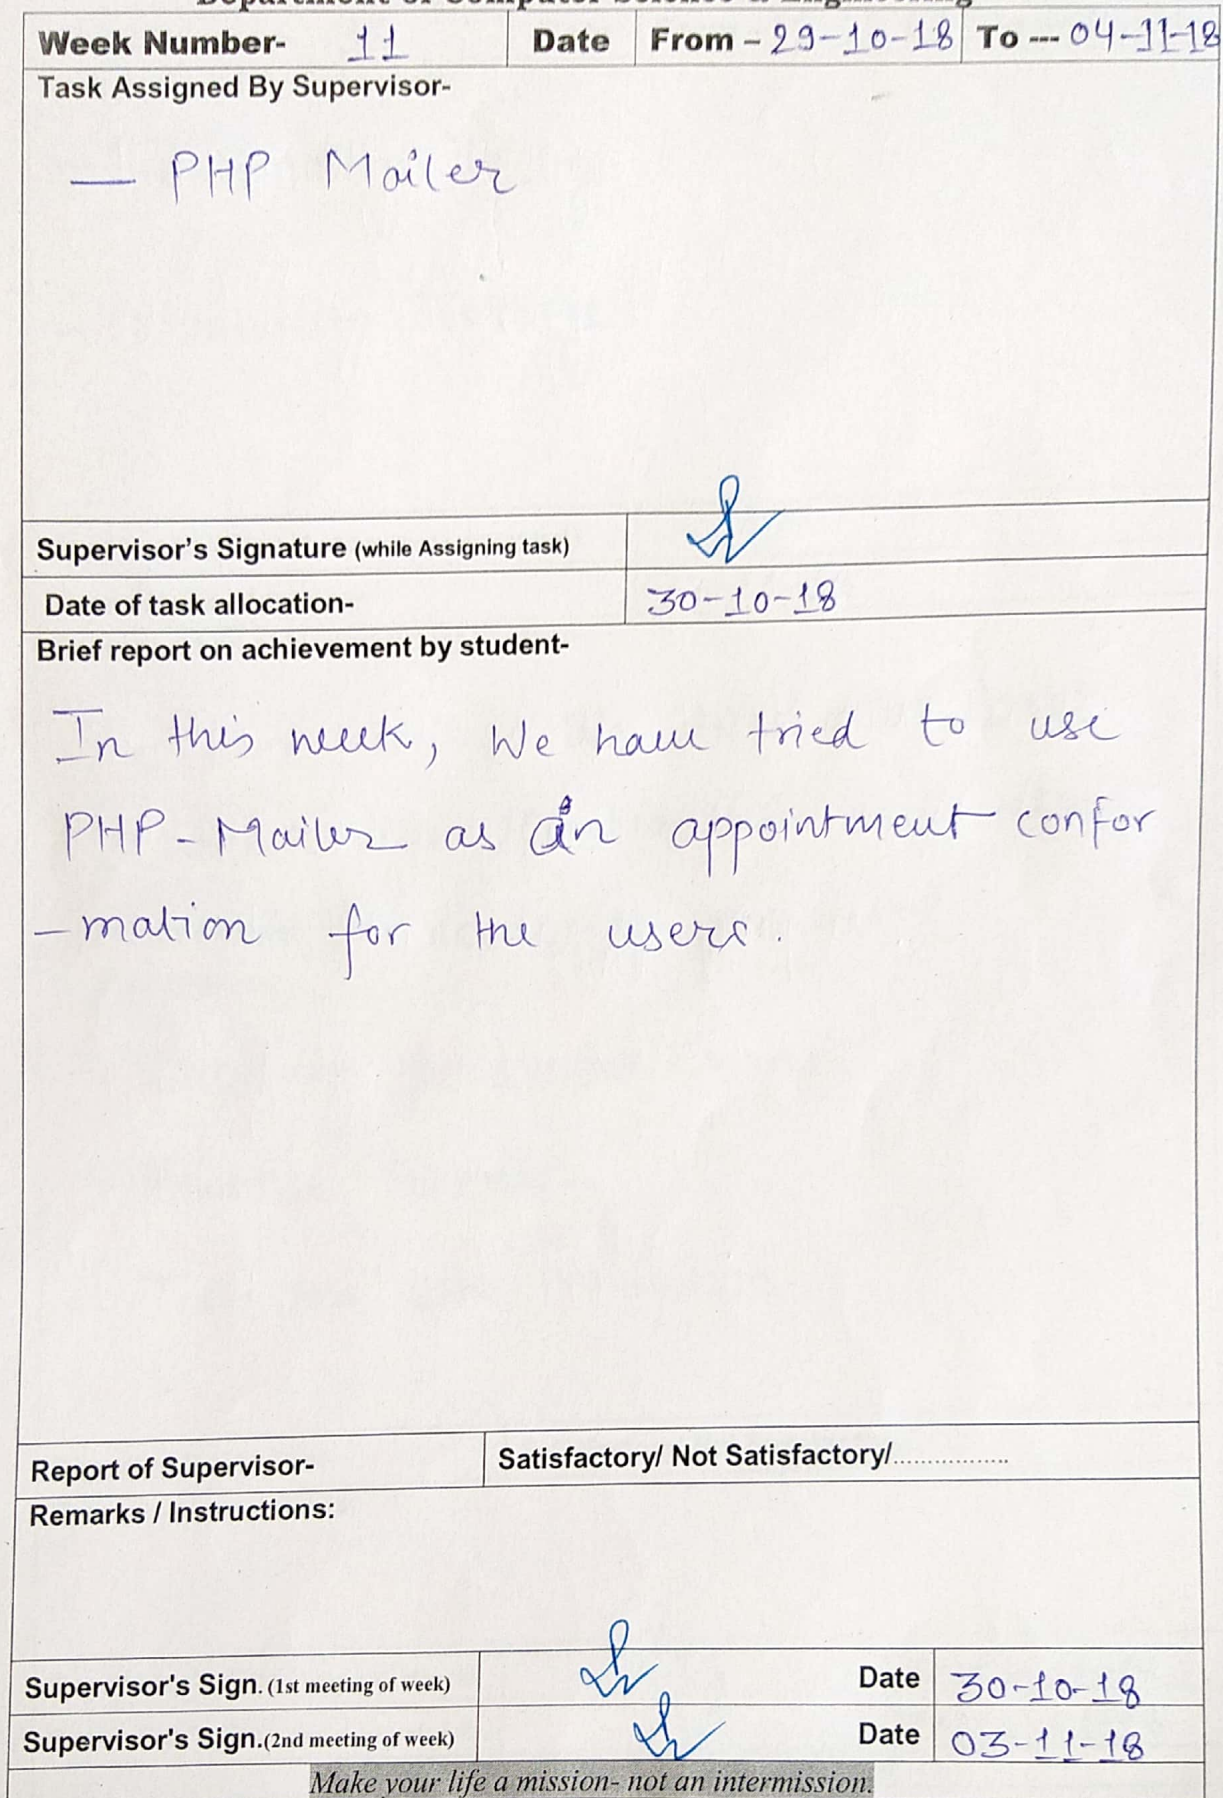 Department of Computer Science & Engineering
Week Number- 11 Date From - 29-10-18 To --- 04-11-18
Task Assigned By Supervisor-
— PHP Mailer
Supervisor's Signature (while Assigning task)
Date of task allocation- 30-10-18
Brief report on achievement by student-
In this week, We have tried to use
PHP-Mailer as an appointment confor
-mation for the users.
Report of Supervisor- Satisfactory/ Not Satisfactory/.................
Remarks / Instructions:
Supervisor's Sign. (1st meeting of week) Date 30-10-18
Supervisor's Sign.(2nd meeting of week) Date 03-11-18
Make your life a mission- not an intermission.